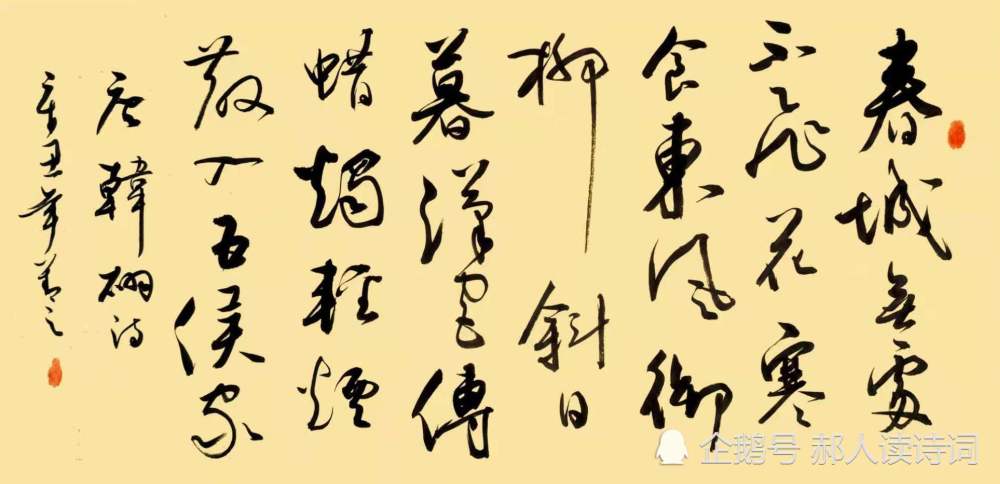 春城無處
不飛花寒
食東風御
柳斜日
暮漢宮傳
蜡燭輕煙
散入五侯家
唐韓翃詩
辛丑年
企鹅号 郝人读诗词